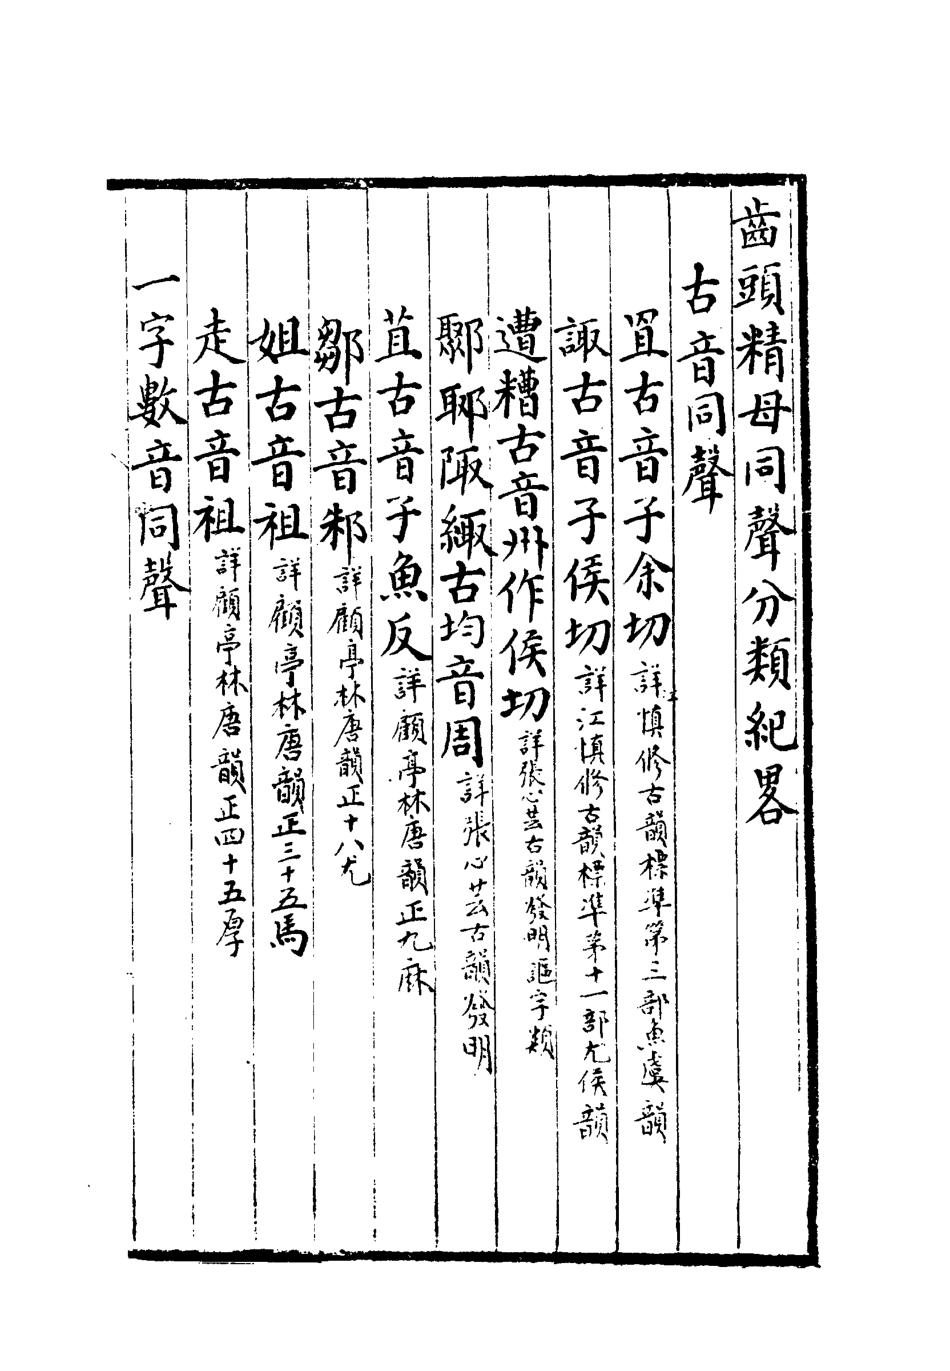 齒頭精母同聲分類紀畧
古音同聲
罝古音子余切詳江慎修古韻標準第三部魚虞韻
諏古音子侯切詳江慎修古韻標準第十一部尤侯韻
遭糟古音州作侯切詳張心芸古韻發明謳字類
鄹郰陬緅古均音周詳張心芸古韻發明
苴古音子魚反詳顧亭林唐韻正九麻
鄒古音邾詳顧亭林唐韻正十八尤
姐古音祖詳顧亭林唐韻正三十五馬
走古音祖詳顧亭林唐韻正四十五厚
一字數音同聲